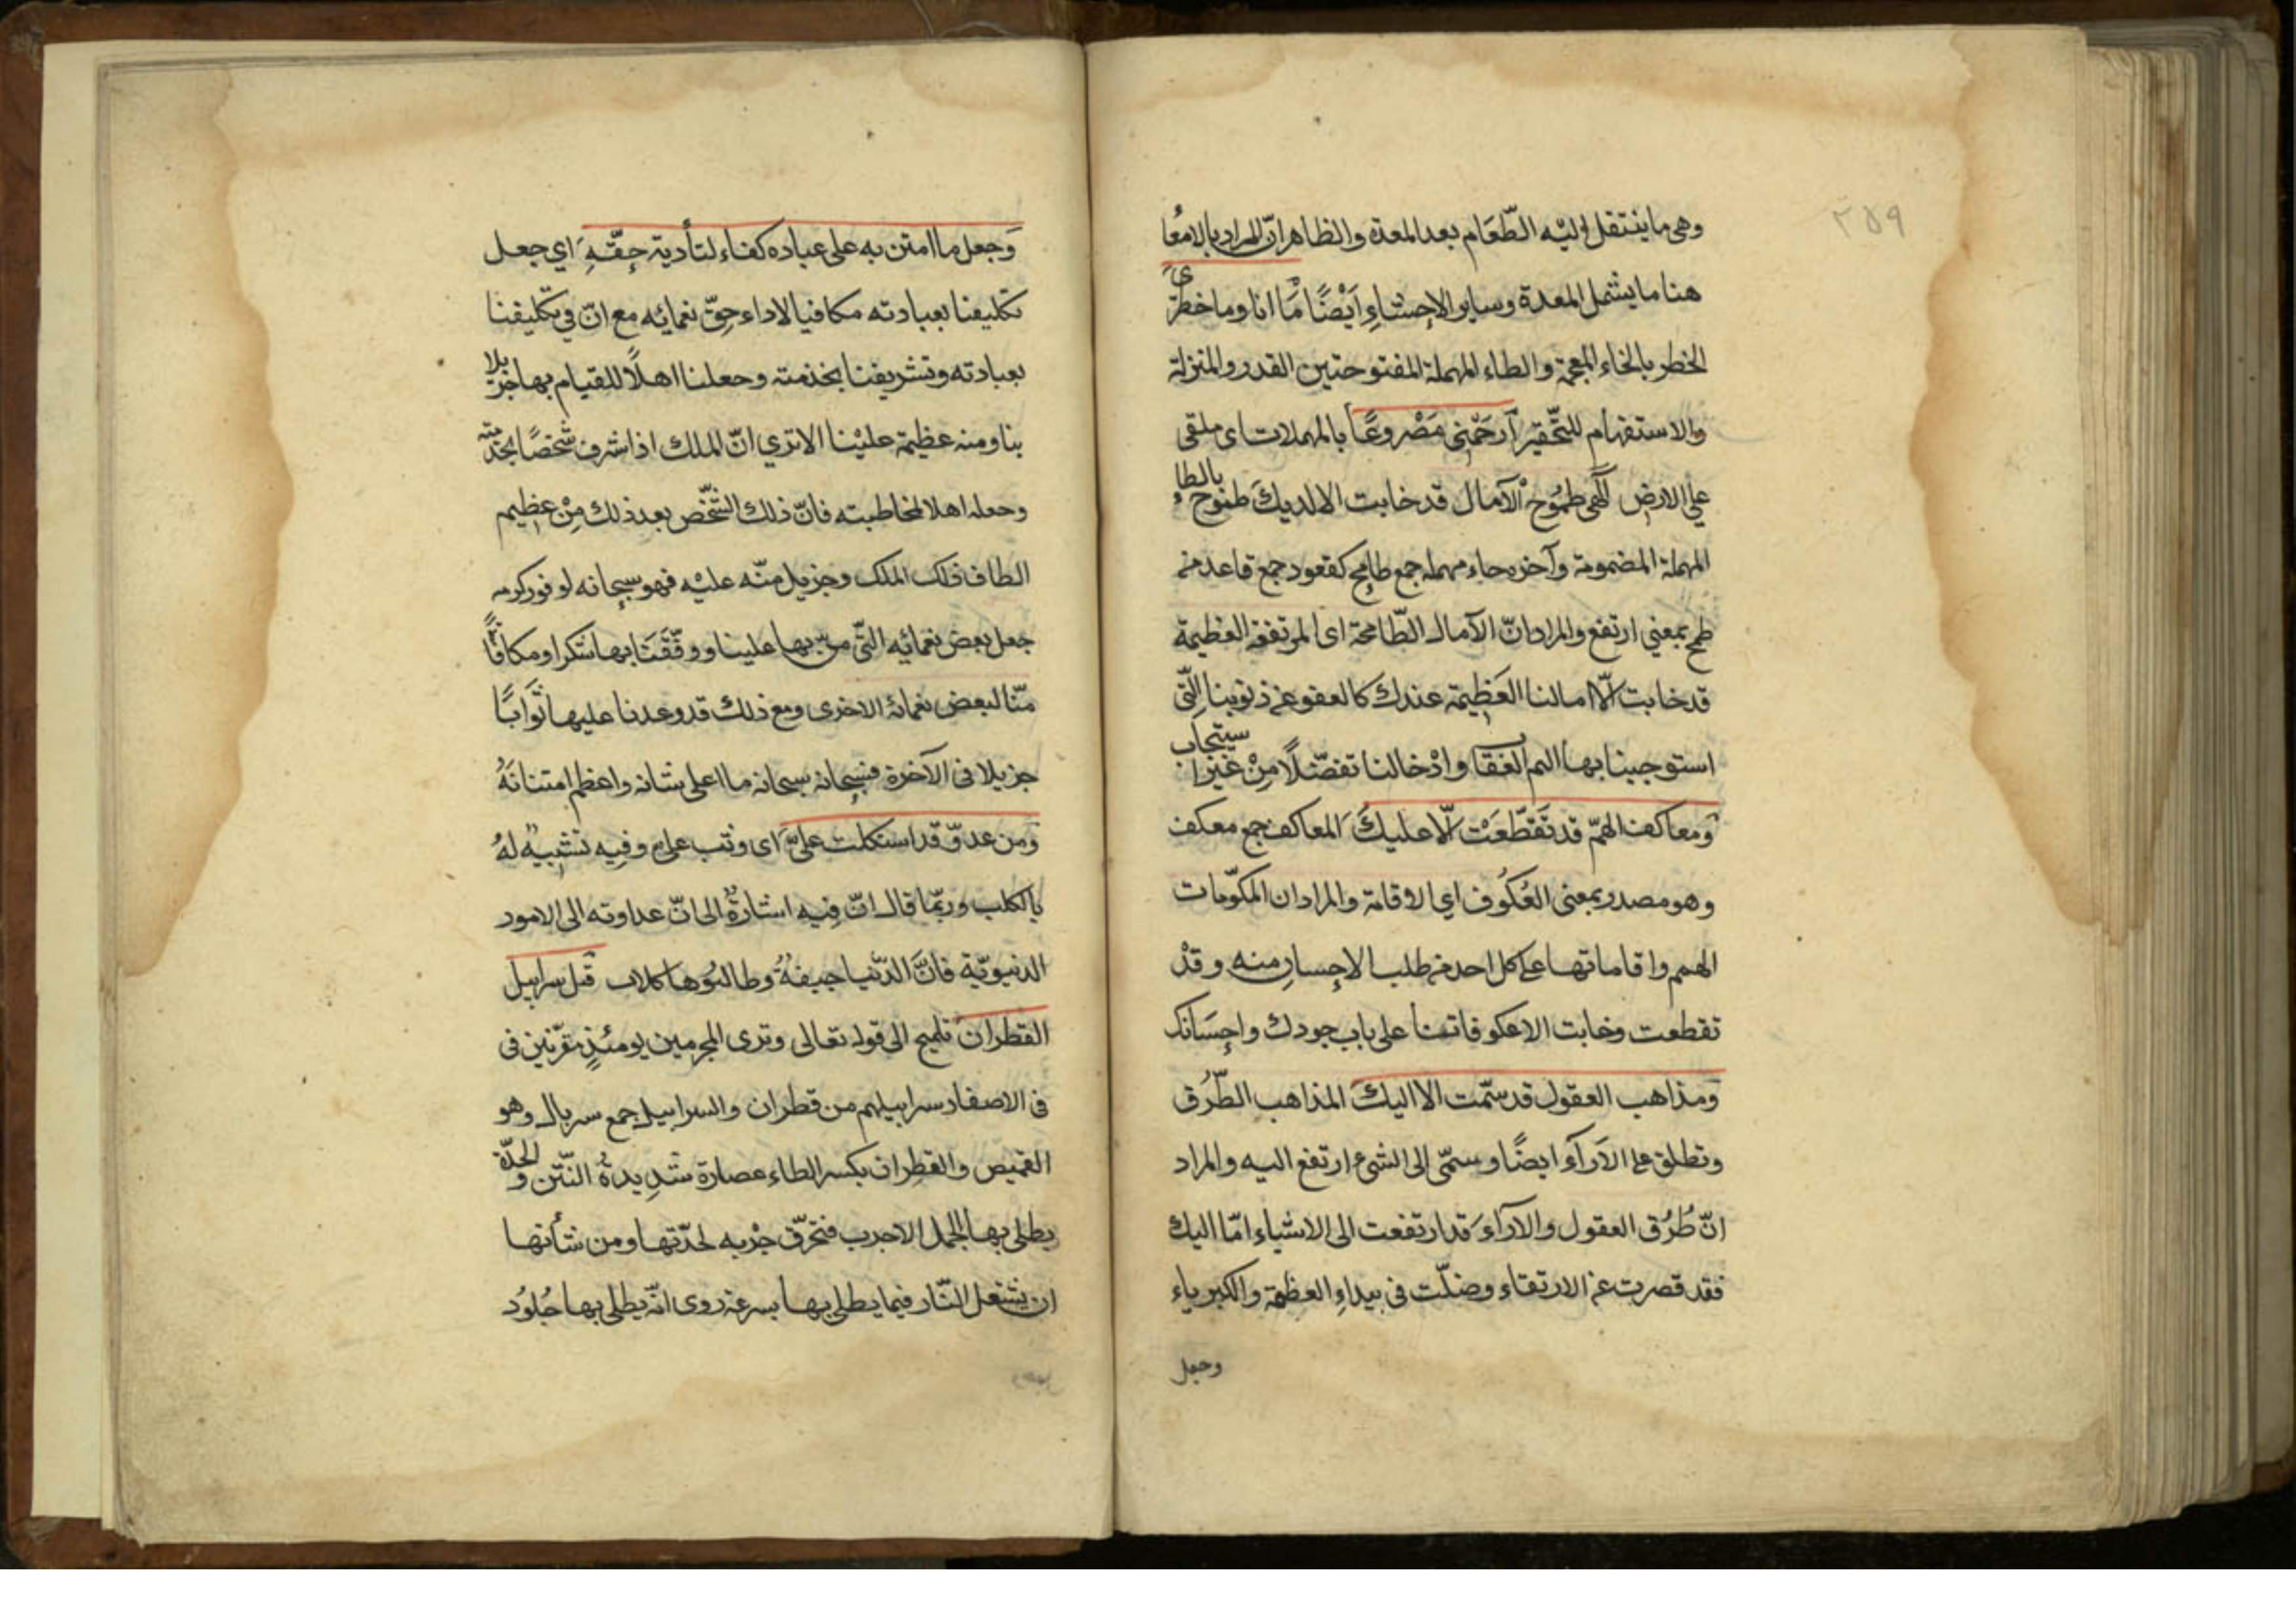 ٢٥٩
وهى ما ينتقل اليْه الطّعَام بعد المعدة والظاهر انّ المراد بالامعُا
هنا ما يشمل المعدة وساير الاحشاءِ اَيْضًا مَا انا وما خطرى
الخطر بالخاء المعجمة والطاء المهملة المفتوحتين القدر والمنزلة
والاستفهام للتّحقير اَرحَمْنى مَصْروعًا بالمهملات اى ملقى
على الارض الٓهى طمُوحْ الآمال قد خابت الا لديكَ طموح بالطاءِ
المهملة المضمومة وآخره حاء مهمله جمع طامِح كقعود جمع قاعد من
طمح بمعنى ارتفع والمراد انّ الآمال الطّامحة اى المرتفعة العظيمة
قد خابت الّا امالنا العَظِيمة عندك كالعفو عن ذنوبنا الّتى
استوجبنا بها اليم العقاب وادْخالنا تفضّلًا مِنْ غيْر استيجاب
وَمعاكف الهمّم قد تَقطّعَتْ الّا عليكَ المعاكف جمع معكف
وهو مصدر بمعنى العُكوُف اي الاقامة والمراد ان
الهمم واقاماتها على كل احد من طلب الاِحسان منه وقدْ
تقطعت وخابت الا عكوفا تمنا على باب جودك واحِسَانك
وَمذاهب العقول قد سمّت الا اليكَ المذاهب الطّرُق
وتطلق على الآرآء ايضًا وسمّى الى الشئ ارتفع اليه والمراد
انّ طُرُق العقول والارآء قد ارتفعت الى الاشياء امّا اليك
فقد قصرت عن الارتقاء وضلّت فى بيداءِ العظمة والكبرياء
وجعل
وَجعل ما امتن به على عباده كفاء لتأدية حِقّهِ اي جعل
تكليفنا بعبادته مكافيا لاداء حِقّ نعمائه مع انّ فى تكليفنا
بعبادته وتشريفنا بخذمته وجعلنا اهلًا للقيام بها جزيلا
بنا ومنه عظيمة عليْنا الا ترى انّ الملك اذا شرف شخصًا بخدمته
وجعله اهلا لمخاطبته فانّ ذلك الشّخص بعد ذلك مِنْ عظيم
الطاف ذلك الملك وجزيل منّه عليْه فهو سبحانه لوفور كرمه
جعل بعض نعمائِه التّى منّ بها علينا ووفّقَنَا بها شكرا ومكافاً
منّا لبعض نعمائه الاخرى ومع ذلك قد وعدنا عليها ثَوَابًا
جزيلا فى الآخرة فسبحانه سبحانه ما اعلى شانه واعظم امتنانَهُ
وَمن عدوّ قد استكلت علىّ اى وثب علىّ وفيه تشبِيْهٌ لهُ
بالكلب وربّما قال انّ فيه اشارةٌ الى انّ عداوته الى الامور
الدنيويّة فانَّ الدّنيا جيفةٌ وطالبُوها كلاب قبل سرابيل
القطران تلميح الى قوله تعالى وترى المجرمين يومئذٍ مقرّنين فى
فى الاصفاد سرابيلهم من قطران والسرابيل جمع سربال وهو
القميص والقطِران بكسر الطاء عصارة شدِيدةُ النّتن والحدّة
يطلى بها الجمل الاجرب فتحرّق جرْبه لحدّتها ومن شأنها
ان يشتعل النّار فيما يطلى بها بسرعة روى انّه يطلى بها جُلوُد